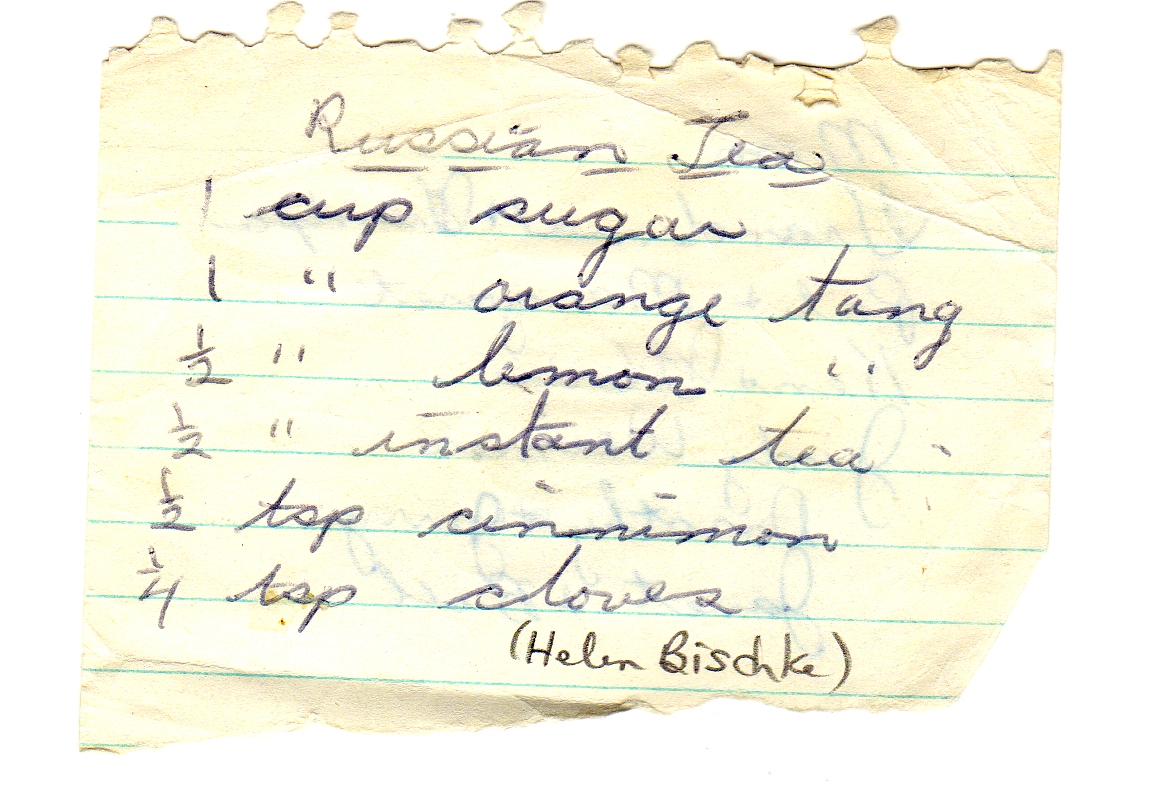 Russian Tea
1 cup sugar
1 " orange tang
1/2 " lemon "
1/2 " instant tea
1/2 tsp cinnimon
1/4 tsp cloves
(Helen Bischke)